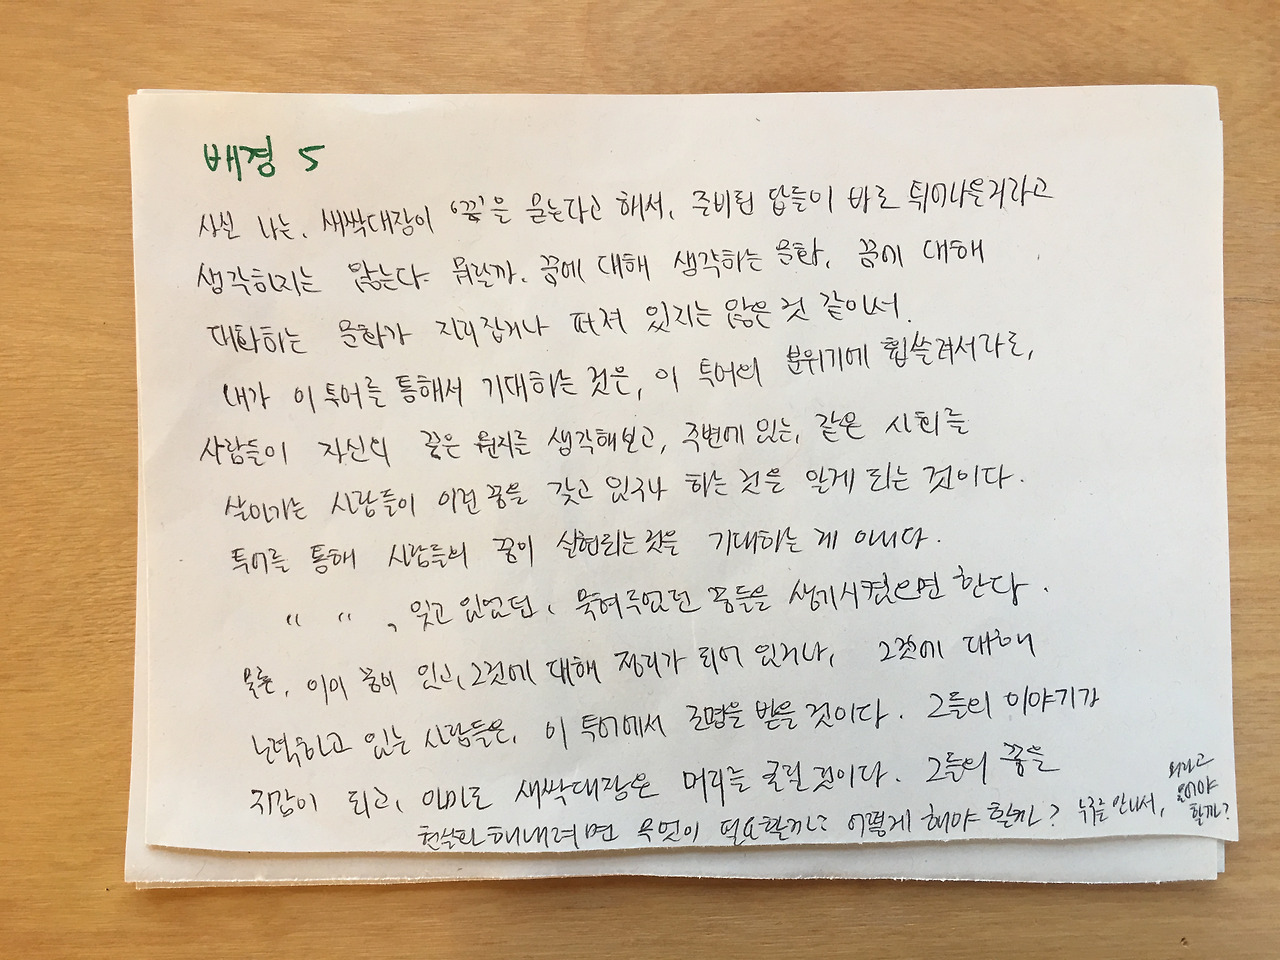 배경 5
사실 나는, 새싹대장이 '꿈'을 묻는다고 해서, 준비된 답들이 바로 튀어나올거라고
생각하지는 않는다. 뭐랄까. 꿈에 대해 생각하는 문화, 꿈에 대해
대화하는 문화가 자리잡거나 퍼져 있지는 않은 것 같아서.
내가 이 투어를 통해서 기대하는 것은, 이 투어의 분위기에 휩쓸려서라도,
사람들이 자신의 꿈은 뭔지를 생각해보고, 주변에 있는, 같은 사회를
살아가는 사람들이 이런 꿈을 갖고 있구나 하는 것을 알게 되는 것이다.
투어를 통해 사람들의 꿈이 실현되는 것을 기대하는 게 아니다.
" " , 잊고 있었던, 묵혀두었던 꿈들을 상기시켰으면 한다.
물론, 이미 꿈이 있고, 그것에 대해 정리가 되어 있거나, 그것에 대해
노력하고 있는 사람들은, 이 투어에서 조명을 받을 것이다. 그들의 이야기가
직감이 되고, 이미로 새싹대장은 머리를 굴릴 것이다. 그들의 꿈을
현실화해내려면 무엇이 필요할까? 어떻게 해야 할까? 누구를 만나서,
뭐라고
물어야
할까?